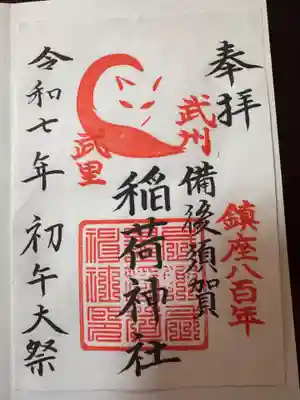 奉拝
鎮座八百年
武州
備後須賀
稲荷神社
武里
令和七年 初午大祭